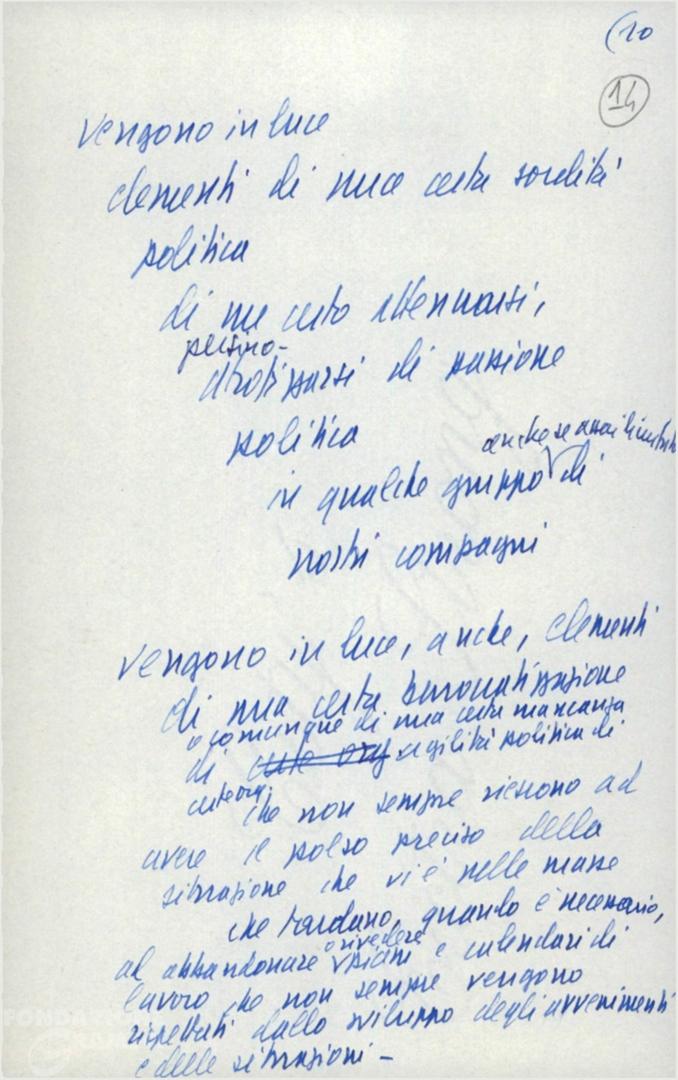 (10
14
vengono in luce
elementi di una certa sordità
politica
di un certo attenuarsi,
persino -
atrofizzarsi di passione
politica
anche se assai limitato
in qualche gruppo di
nostri compagni
vengono in luce, anche, elementi
di una certa burocratizzazione
o comunque di una certa mancanza
di certe org agilità politica di
certe org.
che non sempre riescono ad
avere il polso preciso della
situazione che vi è nelle masse
che tardano, quando è necessario,
o rivedere
ad abbandonare piani e calendari di
lavoro che non sempre vengono
rispettati dallo sviluppo degli avvenimenti
e delle situazioni -